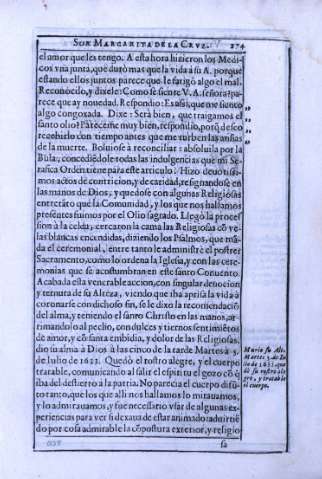 SOR MARGARITA DE LA CRVZ. 274
el amor que les tengo. A esta hora hizieron los Medi-
cos vna junta, que durò mas que la vida a su A. porque
estando ellos juntos parece que le fatigò algo el mal.
Reconocelo, y dixele: Como se siente V. A. señora? pa-
rece que ay nouedad. Respondio: Es assi, que me siento
algo congoxada. Dixe: Serà bien, que traigamos el
santo olio? Pareceme muy bien, respondio, porq̃ deseo
recebirlo con tiempo antes que me turben las ansias
de la muerte. Boluiose à reconciliar: absoluila por la
Bula, concediòle todas las indulgencias que mi Se-
rafica Orden tiene para este articulo: Hizo deuotissi-
mos actos de contricion, y de caridad, resignandose en
las manos de Dios, y quedose con algunas Religiosas
entretãto que la Comunidad, y los que nos hallamos
presentes fuimos por el Olio sagrado. Llegò la proces
sion à la celda, cercaron la cama las Religiosas cõ ve-
las blancas encendidas, diziendo los Psalmos, que mã-
da el ceremonial, entre tanto le administrè el postrer
Sacramento, como lo ordena la Iglesia, y con las cere-
monias que se acostumbran en este santo Conuento.
Acabada esta venerable accion, con singular deuocion
y ternura de su Alteza, viendo que iba aprisa la vida à
coronarse con dichoso fin, se le dixo la recomendaciõ
del alma, y teniendo el santo Christo en las manos, ar-
rimandolo al pecho, con dulces y tiernos sentimiẽtos
de amor, y cõ santa embidia, y dolor de las Religiosas,
dio su alma à Dios à las cinco de la tarde Martes à 5.
de Iulio de 1633. Quedò el rostro alegre, y el cuerpo
tratable, comunicando al salir el espiritu el gozo cõ q̃
iba del destierro à la patria. No parecia el cuerpo difũ-
to tanto, que los que alli nos hallamos lo mirauamos,
y lo admirauamos, y fue necessario vsar de algunas ex-
periencias para ver si dexaua de estar animado: admirò
se
do por cosa admirable la cõpostura exterior, y religio
sa
Murio su Al.
Martes 5. de Iu
lio de 1633. que
dò su rostro ale
gre, y tratable
el cuerpo.